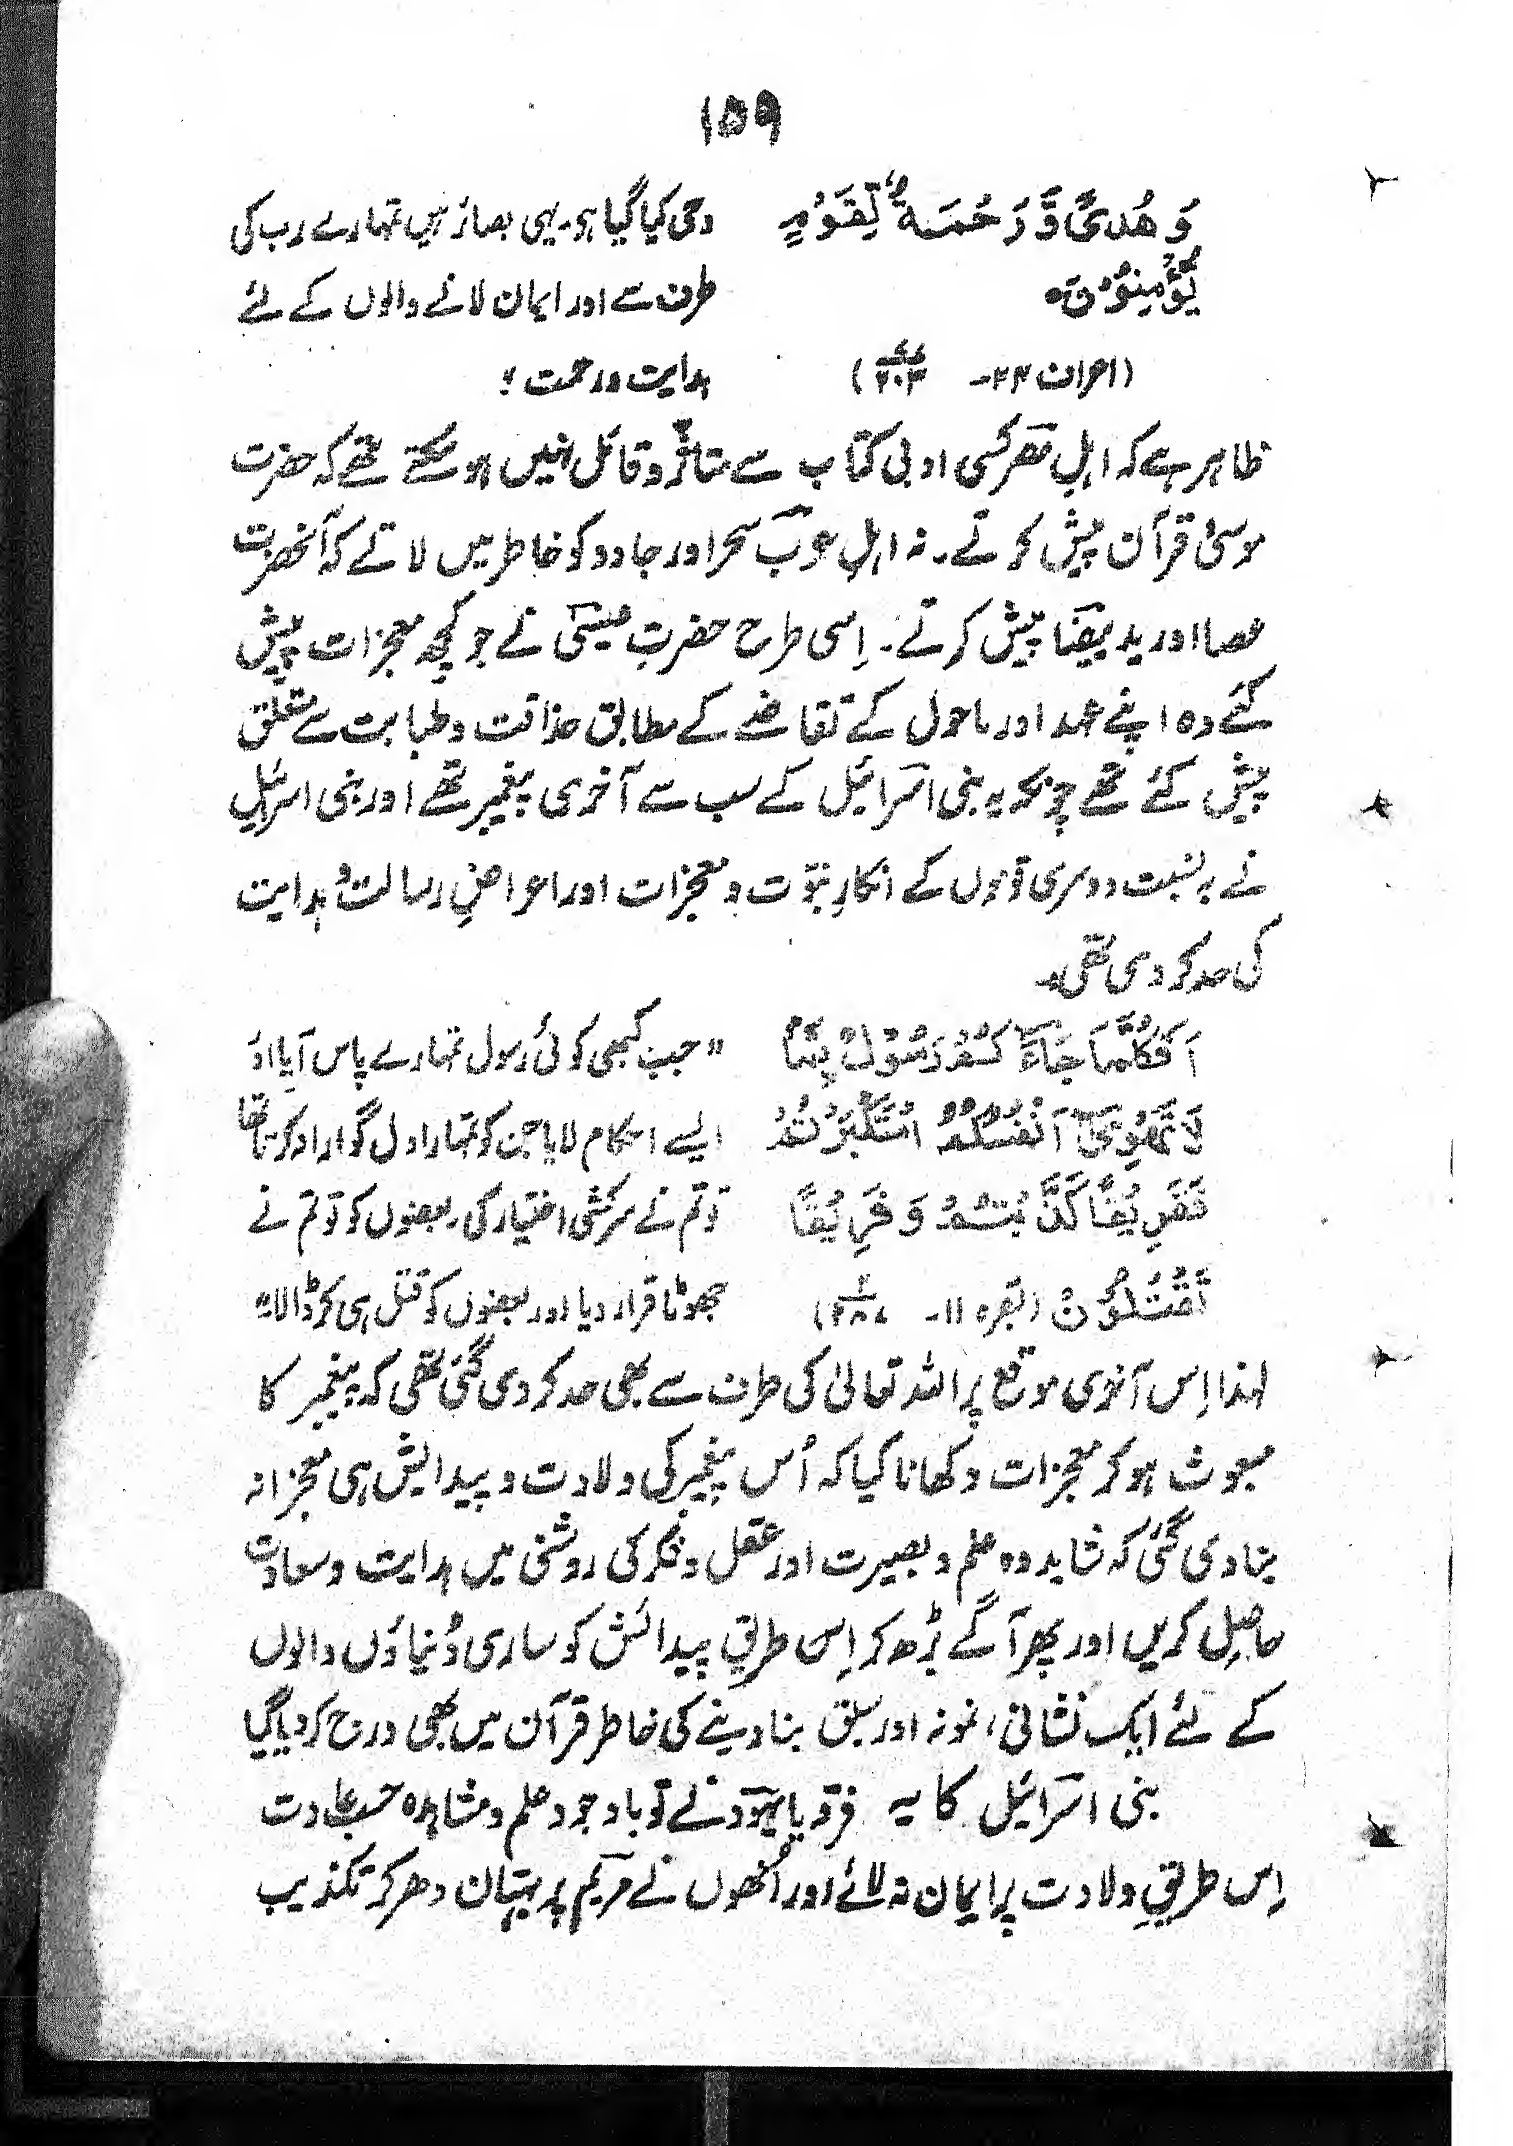 ۱۵۹
وَهُدًى وَّرَحْمَةٌ لِّقَوْمٍ
يُّؤْمِنُوْنَ۝
(اعراف ۲۴- ۲۰۳)
وحی کیا گیا ہو۔ یہی بصائر ہیں تمہارے رب کی
طرف سے اور ایمان لانے والوں کے لئے
ہدایت و رحمت ؛
ظاہر ہے کہ اہلِ مصر کسی ادبی کتاب سے متاثر و قائل نہیں ہو سکتے تھے کہ حضرت
موسیٰ قرآن پیش کرتے۔ نہ اہلِ عرب سحر اور جادو کو خاطر میں لاتے کہ آنحضرت
عصا اور یدِ بیضا پیش کرتے۔ اِسی طرح حضرت عیسیٰ نے جو کچھ معجزات پیش
کئے وہ اپنے عہد اور ماحول کے تقاضے کے مطابق حذاقت و طبابت سے متعلق
پیش کئے تھے چونکہ یہ بنی اسرائیل کے سب سے آخری پیغمبر تھے اور بنی اسرائیل
نے بہ نسبت دوسری قوموں کے انکارِ نبوّت و معجزات اور اعراضِ رسالت و ہدایت
کی حد کر دی تھی۔
اَفَكُلَّمَا جَآءَكُمْ رَسُوْلٌۢ بِمَا
لَا تَهْوٰٓى اَنْفُسُكُمُ اسْتَكْبَرْتُمْ
فَفَرِيْقًا كَذَّبْتُمْ وَفَرِيْقًا
تَقْتُلُوْنَ (بقرہ ۱۱- ۲۸۷)
"جب کبھی کوئی رسول تمہارے پاس آیا اور
ایسے احکام لایا جن کو تمہارا دل گوارا نہ کرتا تھا
تو تم نے سرکشی اختیار کی۔ بعضوں کو تو تم نے
جھوٹا قرار دیا اور بعضوں کو قتل ہی کر ڈالا۔"
لہٰذا اِس آخری موقع پر اللہ تعالیٰ کی طرف سے بھی حد کر دی گئی تھی کہ پیغمبر کا
مبعوث ہو کر معجزات دکھانا کیا کہ اُس پیغمبر کی ولادت و پیدایش ہی معجزانہ
بنا دی گئی کہ شاید وہ علم و بصیرت اور عقل و فکر کی روشنی میں ہدایت و سعادت
حاصل کریں اور پھر آگے بڑھ کر اِس طریقِ پیدائش کو ساری دُنیاؤں والوں
کے لئے ایک نشانی، نمونہ اور سبق بنا دینے کی خاطر قرآن میں بھی درج کر دیا گیا
بنی اسرائیل کا یہ فرقہ یا یہود نے تو باوجود علم و مشاہدہ حسبِ عادت
اِس طریقِ ولادت پر ایمان نہ لائے اور اُنھوں نے مریم پر بہتان دھر کر تکذیب